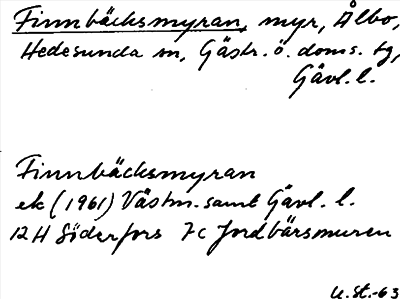 Finnbäcksmyran, myr, Ålbo,
Hedesunda sn, Gästr. ö. doms. tg,
Gävl. l.
Finnbäcksmyran
ek (1961) Västm. samt Gävl. l.
12H Söderfors 7c Jordbärsmuren
U. St.-63